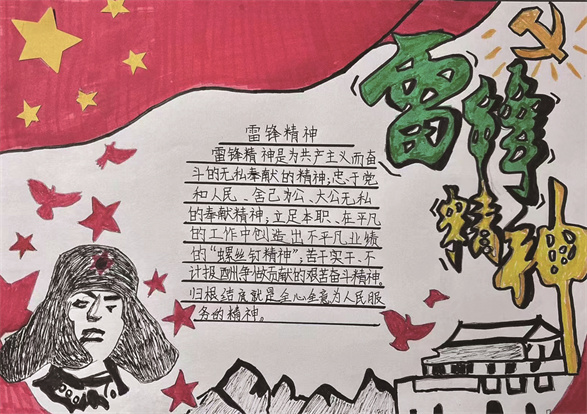 雷锋
精神
雷锋精神
雷锋精神是为共产主义而奋
斗的无私奉献的精神;忠于党
和人民、舍己为公、大公无私
的奉献精神;立足本职、在平凡
的工作中创造出不平凡业绩
的“螺丝钉精神”;苦干实干、不
计报酬,争做贡献的艰苦奋斗精神。
归根结底就是全心全意为人民服
务的精神。